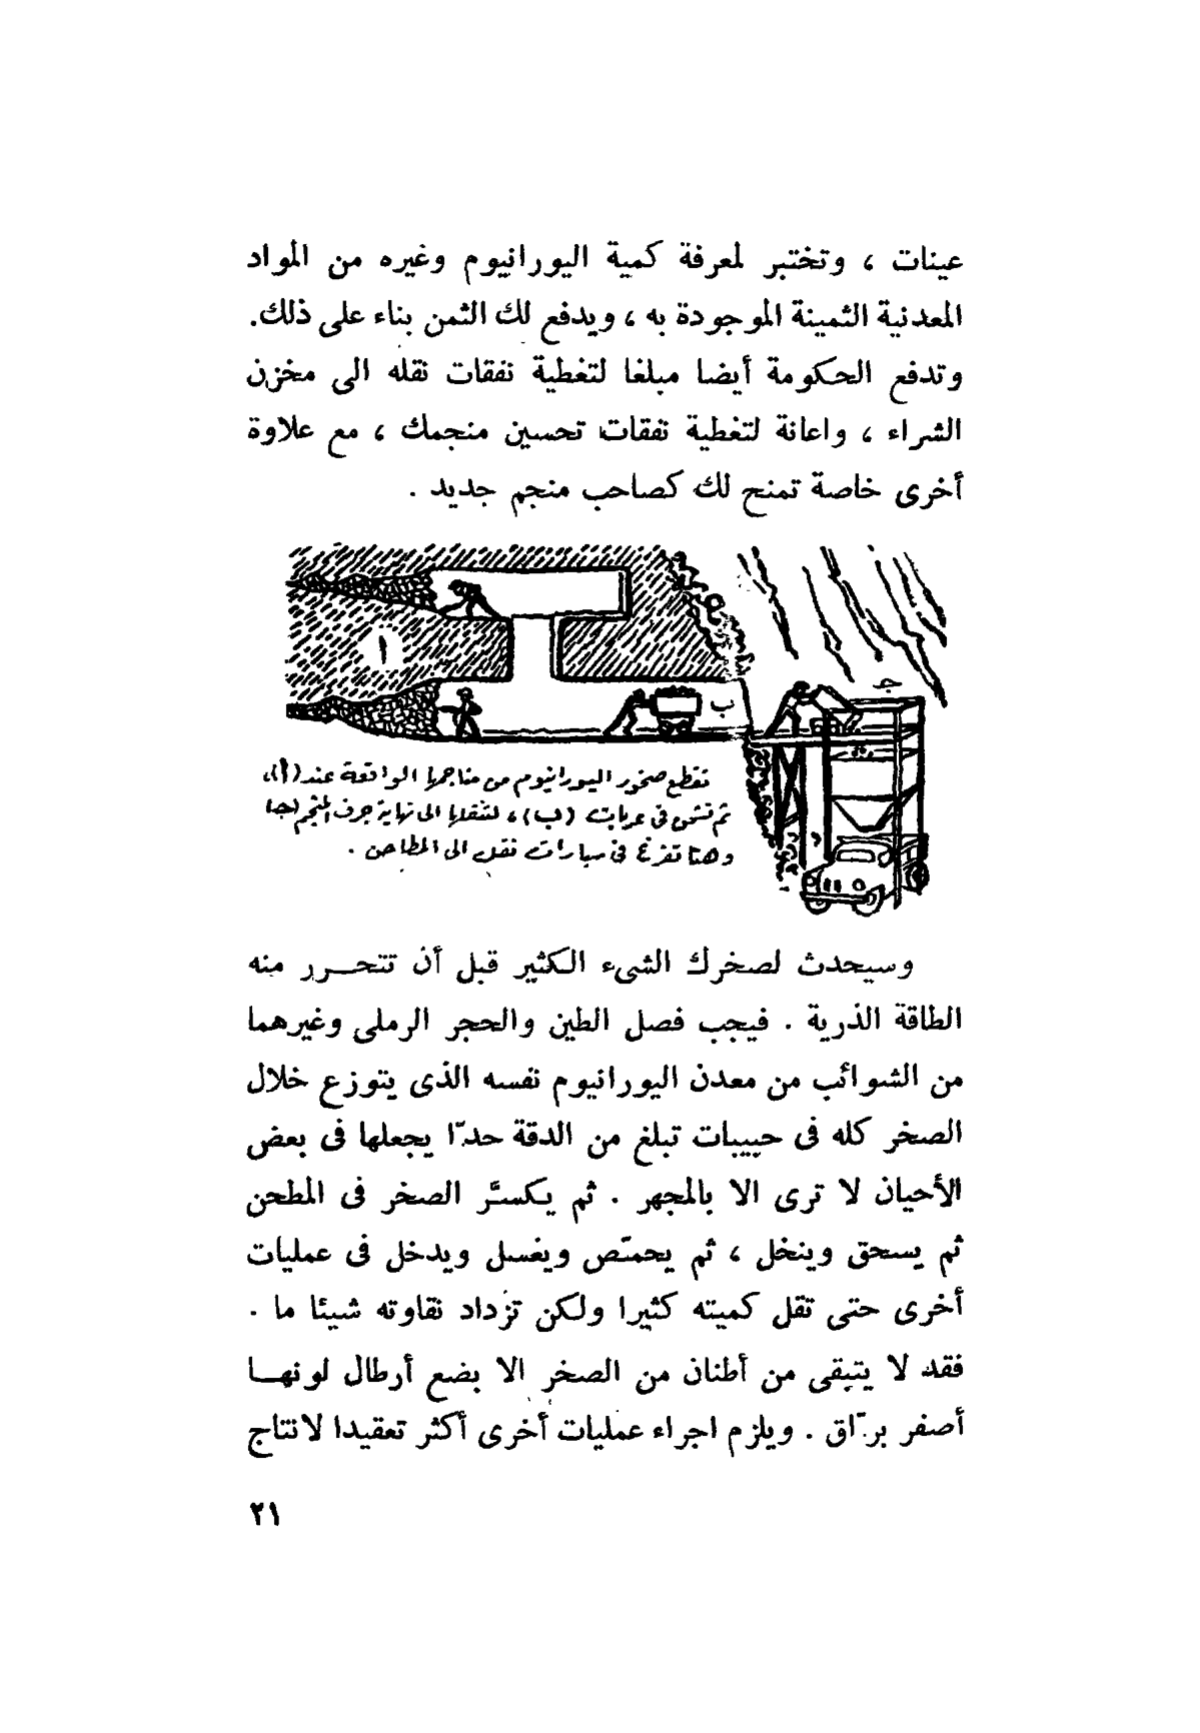 عينات ، وتختبر لمعرفة كمية اليورانيوم وغيره من المواد
المعدنية الثمينة الموجودة به ، ويدفع لك الثمن بناء على ذلك.
وتدفع الحكومة أيضا مبلغا لتغطية نفقات نقله الى مخزن
الشراء ، واعانة لتغطية نفقات تحسين منجمك ، مع علاوة
أخرى خاصة تمنح لك كصاحب منجم جديد .
ا
ب
جـ
تقطع صخور اليورانيوم من مناجمها الواقعة عند (أ)،
ثم تشحن فى عربات (ب) ، لتنقلها الى نهاية جرف المنجم (جـ)
وهنا تفرغ فى سيارات نقل الى المطاحن .
وسيحدث لصخرك الشىء الكثير قبل أن تتحــرر منه
الطاقة الذرية . فيجب فصل الطين والحجر الرملى وغيرهما
من الشوائب من معدن اليورانيوم نفسه الذى يتوزع خلال
الصخر كله فى حبيبات تبلغ من الدقة حدّا يجعلها فى بعض
الأحيان لا ترى الا بالمجهر . ثم يكسَّر الصخر فى المطحن
ثم يسحق وينخل ، ثم يحمّص ويغسل ويدخل فى عمليات
أخرى حتى تقل كميته كثيرا ولكن تزداد نقاوته شيئا ما .
فقد لا يتبقى من أطنان من الصخر الا بضع أرطال لونهــا
أصفر برّاق . ويلزم اجراء عمليات أخرى أكثر تعقيدا لانتاج
٢١